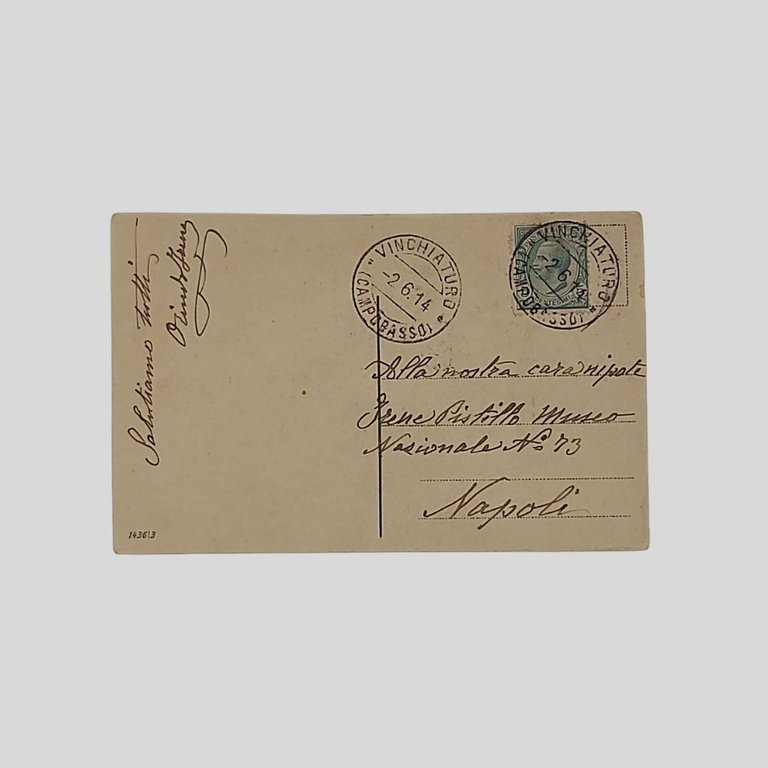 Salutiamo tutti
VINCHIATURO
(CAMPOBASSO)
-2.6.14
VINCHIATURO
(CAMPOBASSO)
-2.6.14
Alla nostra cara nipote
Irene Pistillo Museo
Nasionale No 73
Napoli
1436/3